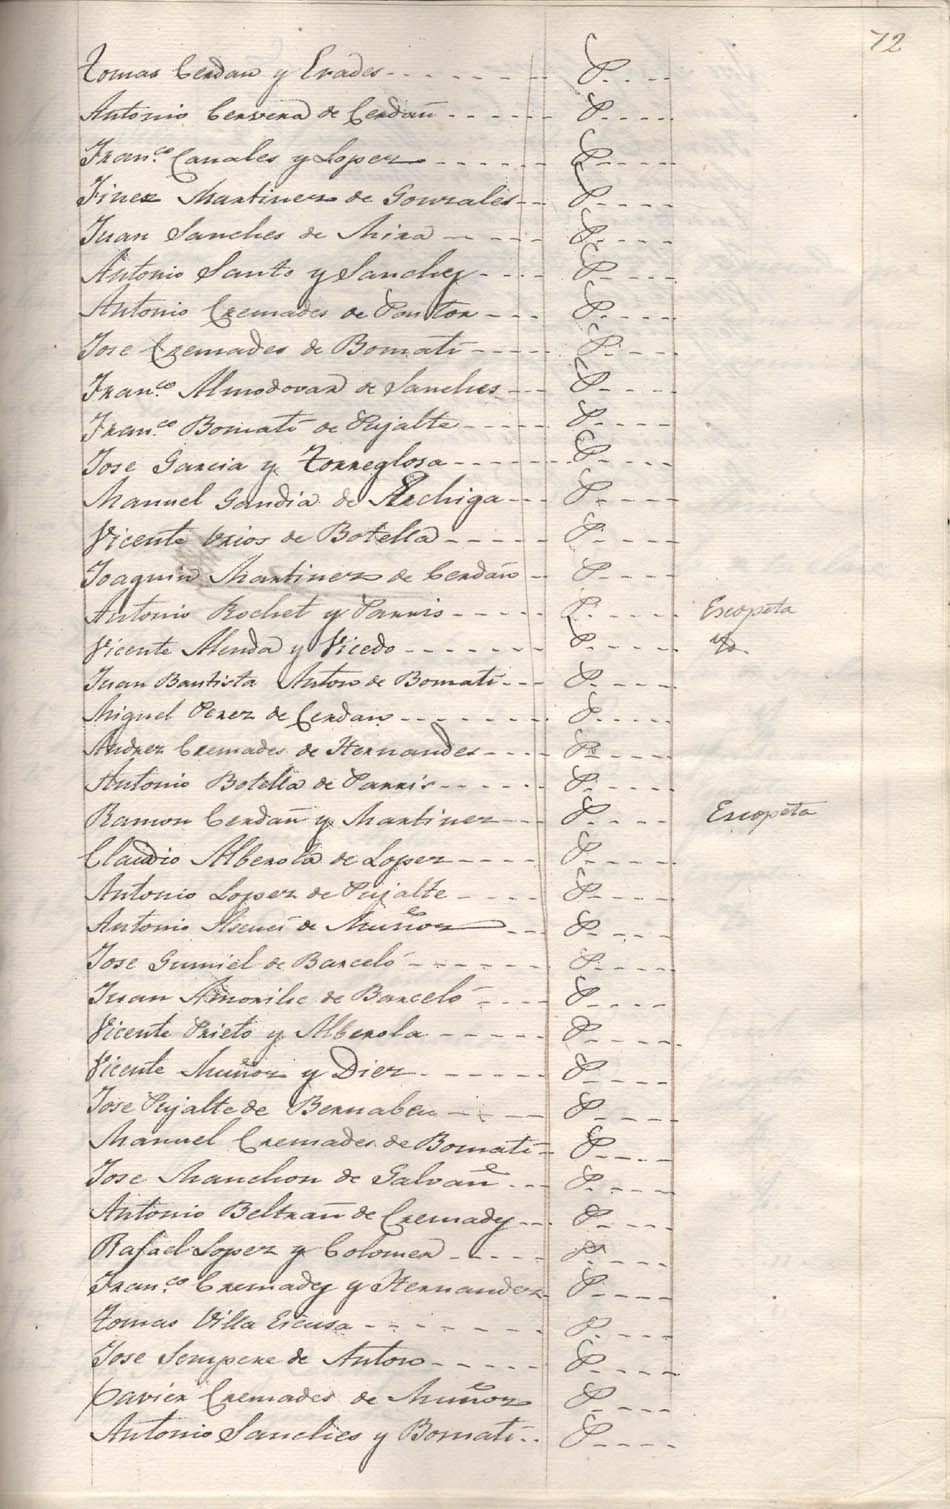 72
Tomas Cerdan y Erades - - - - - - - P. - - -
Antonio Cervera de Cerdañ - - - - - - P. - - - -
Fran.co Canales y Lopez - - - - - - P - - - -
Jinez Martinez de Gonzales - - P - - - -
Juan Sanches de Mira - - - - - P - - - -
Antonio Santo y Sanchez - - - - P - - - -
Antonio Cremades de Pastor - - - P - - - -
Jose Cremades de Bomati - - - - P. - - -
Fran.co Almodovar de Sanches - - - P - - - -
Fran.co Bomati de Pujalte - - - - P - - - -
Jose Garcia y Torreglosa - - - - - P - - - -
Manuel Gandia de Archiga - - - P - - - -
Vicente Urios de Botella - - - - - P - - - -
Joaquin Martinez de Cerdañ - - P - - - -
Antonio Rochet y Parris - - - - - P - - - - Escopeta
Vicente Menda y Vicedo - - - - - - - P - - - - Yd.
Juan Bautista Anton de Bomati - - - P - - - -
Miguel Perez de Cerdan - - - - - - - P - - - -
Andrez Cremades de Hernandes - - - - P - - - -
Antonio Botella de Parris - - - - - - P. - - - -
Ramon Cerdañ y Martinez - - - P - - - - Escopeta
Claudio Alberola de Lopez - - - - P - - - -
Antonio Lopez de Pujalte - - - - P - - - -
Antonio de Muñoz - - - P - - - -
Jose Gumiel de Barceló - - - - - - P - - - -
Juan de Barceló - - - - P - - - -
Vicente Prieto y Alberola - - - - - P - - - -
Vicente Muñoz y Diez - - - - - - P - - - -
Jose Pujalte de Bernabeu - - - - P - - - -
Manuel Cremades de Bomati - P - - - -
Jose Manchon de Galvañ - - - P - - - -
Antonio Beltrañ de Cremadez - - - P - - - -
Rafael Lopez y Colomer - - - - - P - - - -
Fran.co Cremadez y Hernandez P - - - -
Tomas Villa Escusa - - - - - - - P - - - -
Jose Sempere de Anton - - - - - P - - - -
Xavier Cremades de Muñoz P - - - -
Antonio Sanches y Bomati - - P - - - -